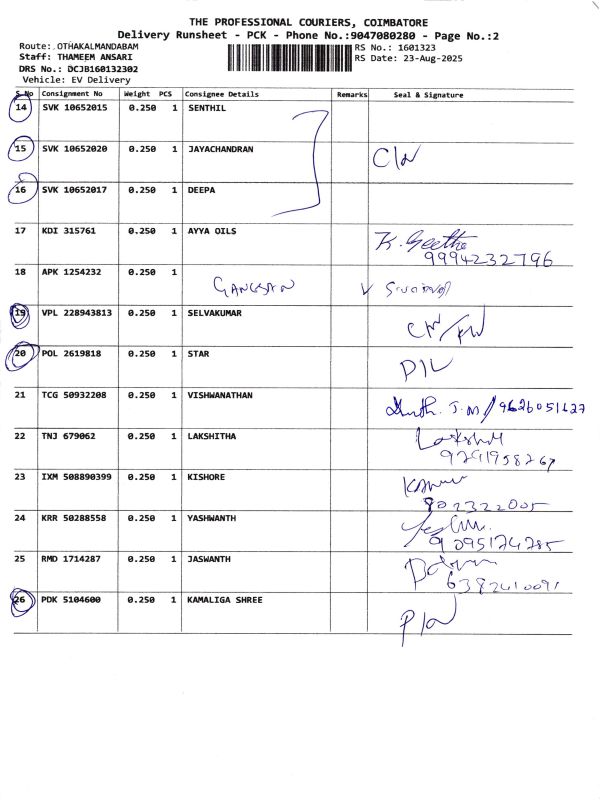 THE PROFESSIONAL COURIERS, COIMBATORE
Delivery Runsheet - PCK - Phone No.:9047080280 - Page No.:2
Route: OTHAKALMANDABAM
RS No.: 1601323
Staff: THAMEEM ANSARI
RS Date: 23-Aug-2025
DRS No.: DCJB160132302
Vehicle: EV Delivery
S No Consignment No Weight PCS Consignee Details Remarks Seal & Signature
14 SVK 10652015 0.250 1 SENTHIL
15 SVK 10652020 0.250 1 JAYACHANDRAN
16 SVK 10652017 0.250 1 DEEPA
17 KDI 315761 0.250 1 AYYA OILS K. Geetha
9994232796
18 APK 1254232 0.250 1
19 VPL 228943813 0.250 1 SELVAKUMAR
20 POL 2619818 0.250 1 STAR
21 TCG 50932208 0.250 1 VISHWANATHAN
22 TNJ 679062 0.250 1 LAKSHITHA
23 IXM 508890399 0.250 1 KISHORE
24 KRR 50288558 0.250 1 YASHWANTH
25 RMD 1714287 0.250 1 JASWANTH
26 PDK 5104600 0.250 1 KAMALIGA SHREE